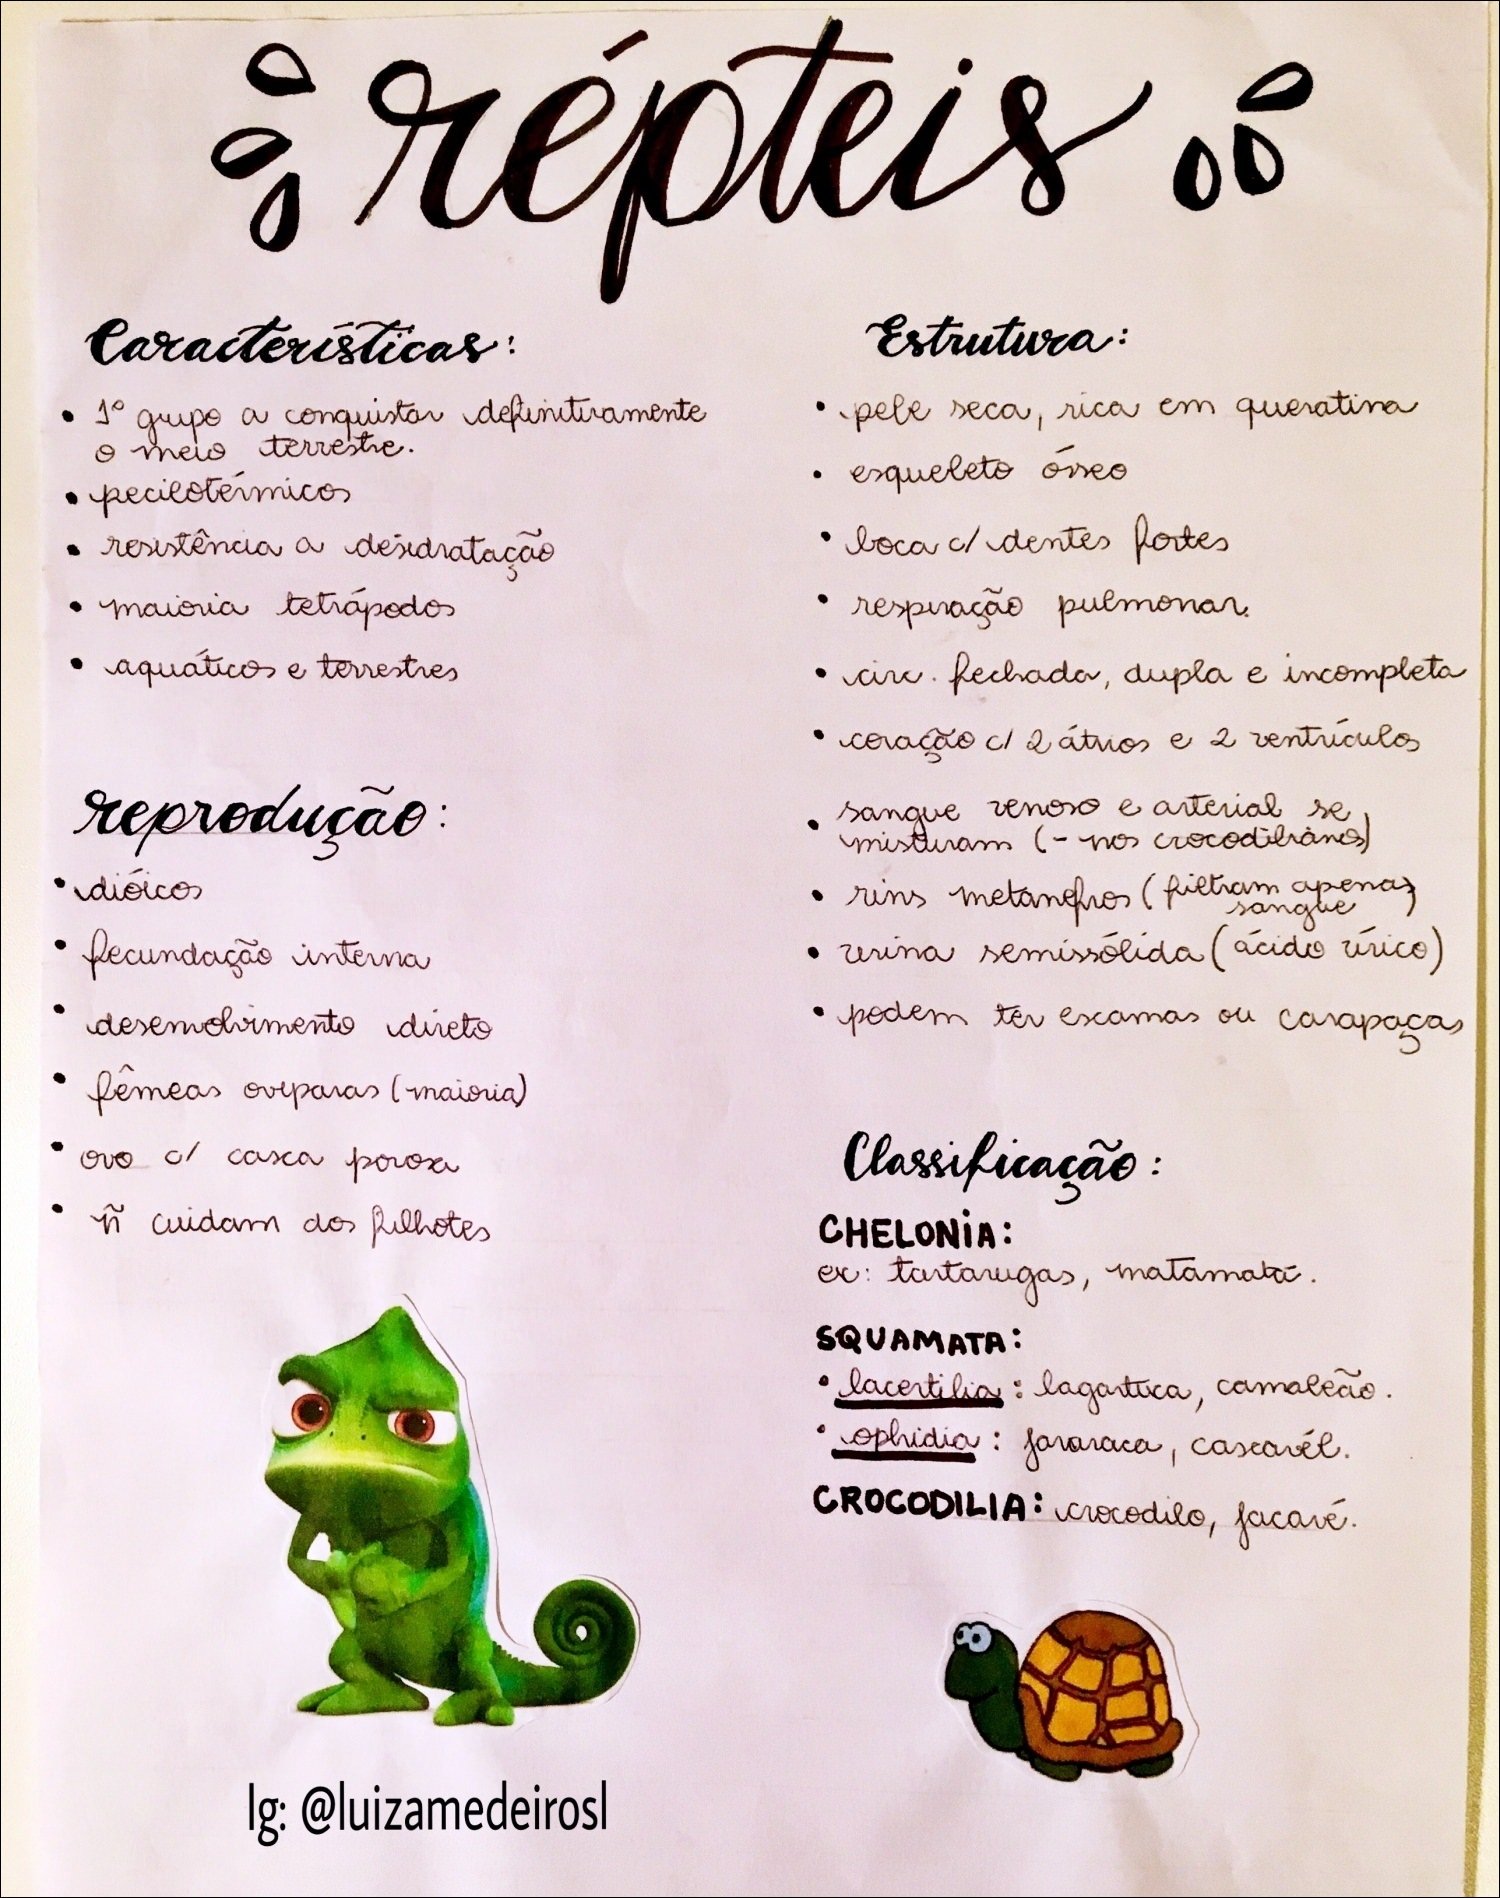 répteis
Características:
• 1º grupo a conquistar definitivamente
o meio terrestre.
• pecilotérmicos
• resistência a desidratação
• maioria tetrápodos
• aquáticos e terrestres
reprodução:
• dióicos
• fecundação interna
• desenvolvimento direto
• fêmeas ovíparas (maioria)
• ovo c/ casca porosa
• ñ cuidam dos filhotes
Ig: @luizamedeirosl
Estrutura:
• pele seca, rica em queratina
• esqueleto ósseo
• boca c/ dentes fortes
• respiração pulmonar.
• circ. fechada, dupla e incompleta
• coração c/ 2 átrios e 2 ventrículos
• sangue venoso e arterial se
misturam (- nos crocodilianos)
• rins metanefros (filtram apenas
sangue)
• urina semissólida (ácido úrico)
• podem ter escamas ou carapaças
Classificação:
CHELONIA:
ex: tartarugas, matamatá.
SQUAMATA:
• lacertilia: lagartixa, camaleão.
• ophidia: jararaca, cascavél.
CROCODILIA: crocodilo, jacaré.